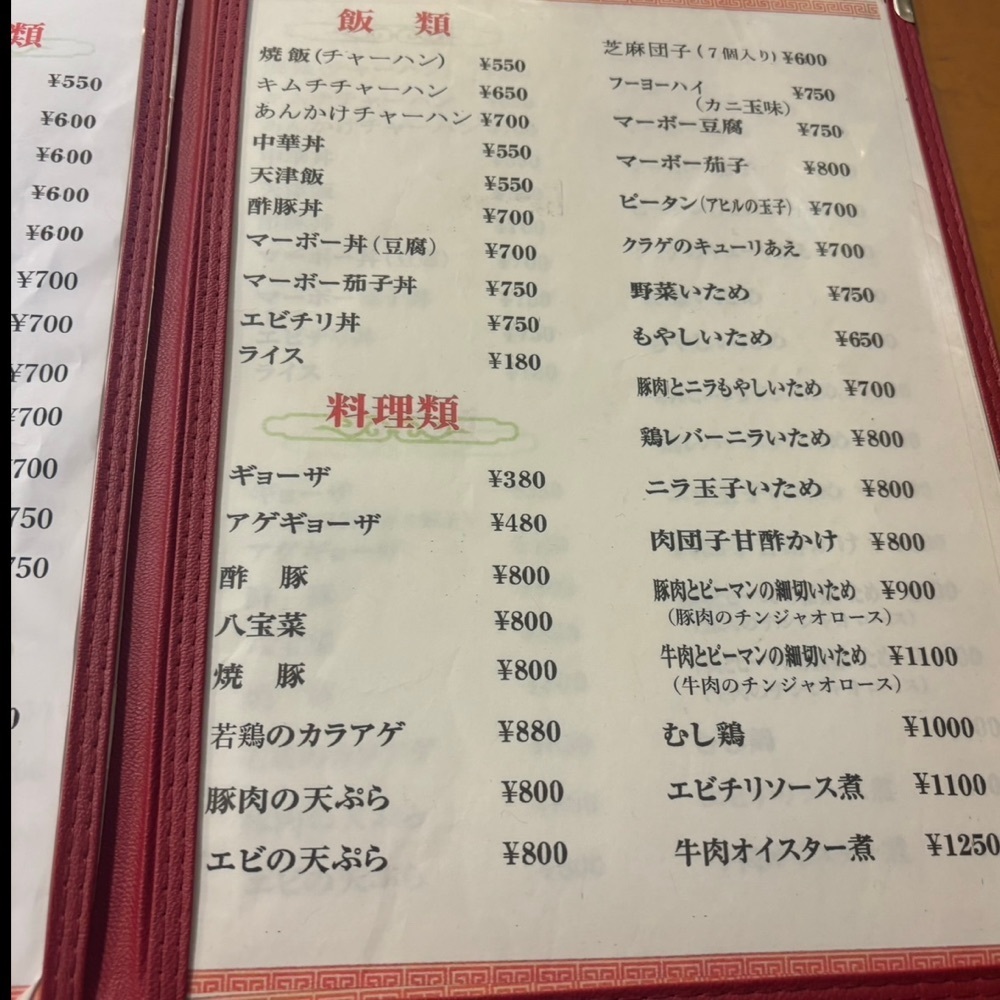 類
¥550
¥600
¥600
¥600
¥600
¥700
¥700
¥700
¥700
700
750
750
飯 類
焼飯(チャーハン) ¥550
キムチチャーハン ¥650
あんかけチャーハン ¥700
中華丼 ¥550
天津飯 ¥550
酢豚丼 ¥700
マーボー丼(豆腐) ¥700
マーボー茄子丼 ¥750
エビチリ丼 ¥750
ライス ¥180
料理類
ギョーザ ¥380
アゲギョーザ ¥480
酢 豚 ¥800
八宝菜 ¥800
焼 豚 ¥800
若鶏のカラアゲ ¥880
豚肉の天ぷら ¥800
エビの天ぷら ¥800
芝麻団子(7個入り) ¥600
フーヨーハイ ¥750
(カニ玉味)
マーボー豆腐 ¥750
マーボー茄子 ¥800
ピータン(アヒルの玉子) ¥700
クラゲのキューリあえ ¥700
野菜いため ¥750
もやしいため ¥650
豚肉とニラもやしいため ¥700
鶏レバーニラいため ¥800
ニラ玉子いため ¥800
肉団子甘酢かけ ¥800
豚肉とピーマンの細切いため ¥900
(豚肉のチンジャオロース)
牛肉とピーマンの細切いため ¥1100
(牛肉のチンジャオロース)
むし鶏 ¥1000
エビチリソース煮 ¥1100
牛肉オイスター煮 ¥1250